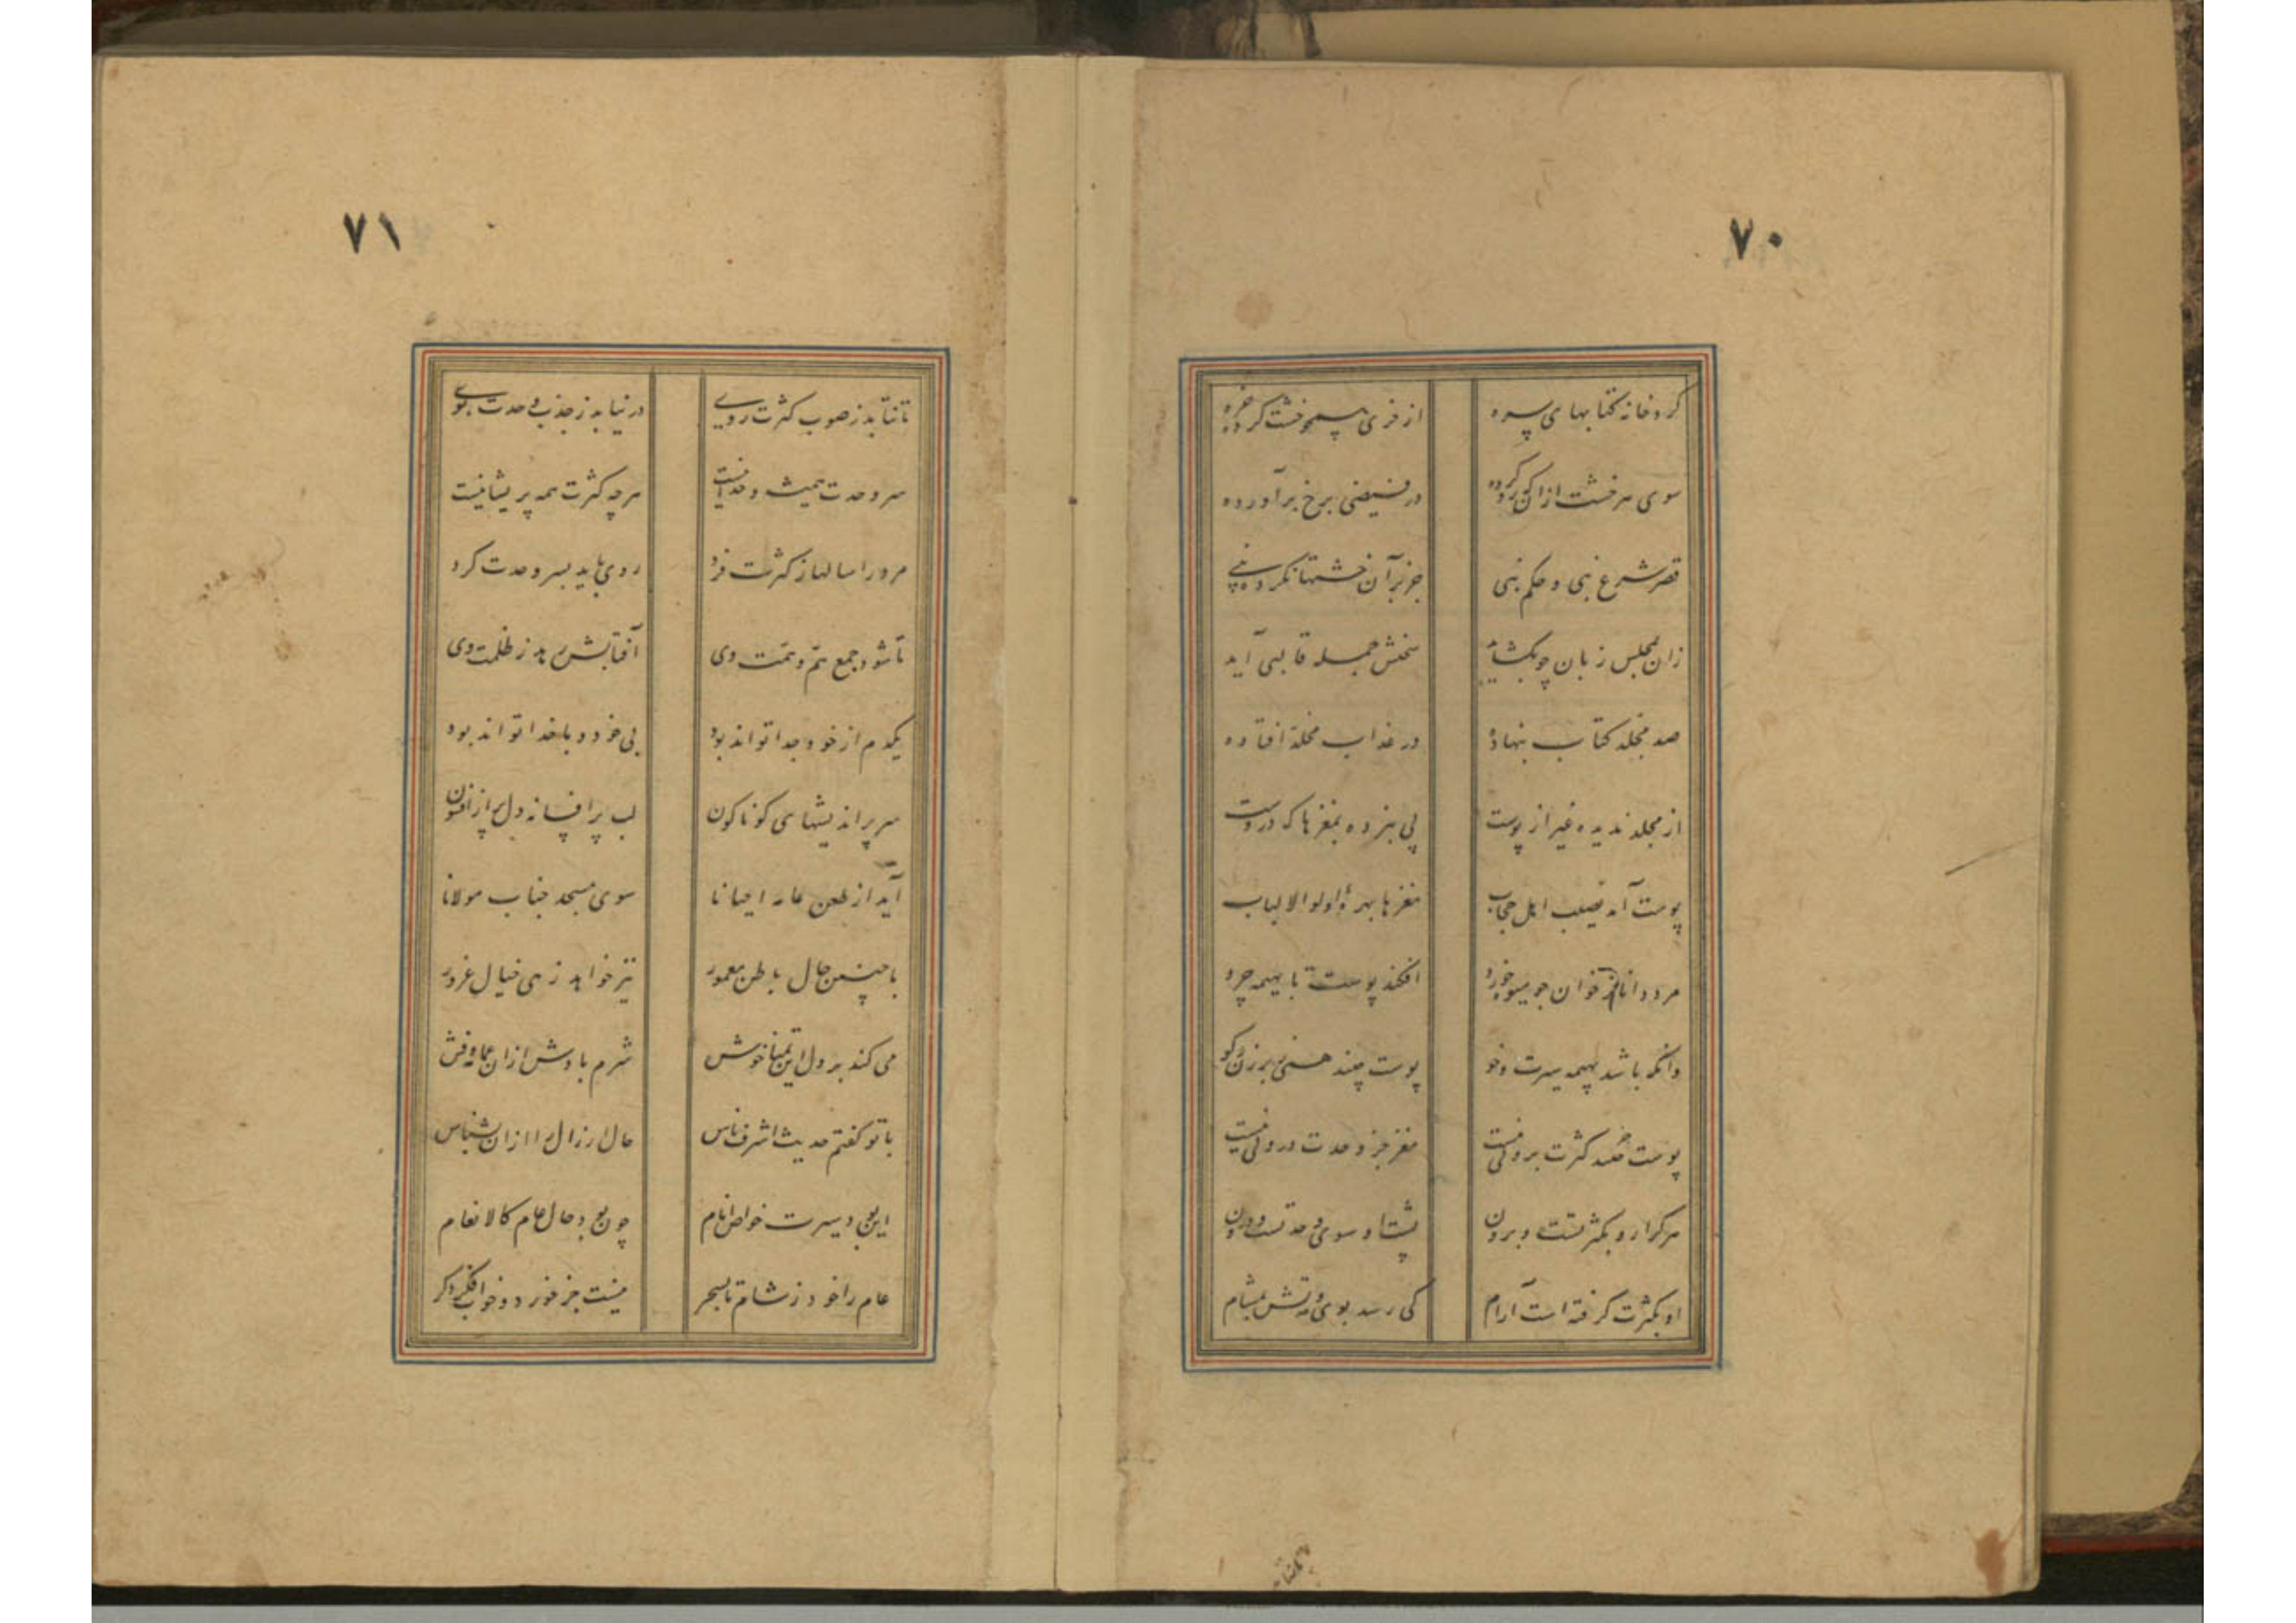 ۷۰
کرد خانه کتابهای سره
از خری همچو خشت کرده خره
سوی هر خشت از آن که رو کرده
در فیضی برخ برآورده
قصر شرع نبی و حکم نبی
جز بر آن خشتها نکرده بنی
زان مجلس زبان چو بگشاید
سخنش جمله قالبی آید
صد مجلد کتاب بنهاده
در عذاب مخلد افتاده
از مجلد ندیده غیر از پوست
پی نبرده بمغزها که دروست
پوست آمد نصیب اهل حجاب
مغزها بهرهٔ اولوا الالباب
مرد دانا ز خوان چو میوه خورد
افکند پوست تا بهیمه چرد
وانکه باشد بهیمه سیرت و خو
پوست چیند همی ز برزن و کو
پوست کثرت برونی نیست
مغز جز وحدت درونی نیست
هر کرا رو بکثرتست و برون
پشت او سوی وحدتست و درون
او بکثرت گرفته است آرام
کی رسد بوی وحدتش بمشام
۷۱
تا نتابد ز صوب کثرت روی
در نیابد ز جذب وحدت بوی
سر وحدت همیشه وحدانیست
هر چه کثرت همه پریشانیست
مرد را سالها ز کثرت فرد
روی باید بسر وحدت کرد
تا شود جمع هم و همت وی
آفتابش رهد ز ظلمت وی
یکدم از خود جدا تواند بود
بی خود و با خدا تواند بود
سر پر اندیشهای کوناکون
لب پر افسانه دل پر از افسون
آید از طعن عامه احیانا
سوی مسجد جناب مولانا
با چنین حال باطن معمور
نیز خواهد زهی خیال غرور
می کند بر دل این تمنا خوش
شرم بادش از آن عمامه و فش
با تو کفتم حدیث اشرف ناس
حال ارزال را از آن بشناس
این بود سیرت خواص انام
چون بود حال عام کالانعام
عام را خود ز شام تا بسحر
نیست جز خورد و خواب فکر دکر